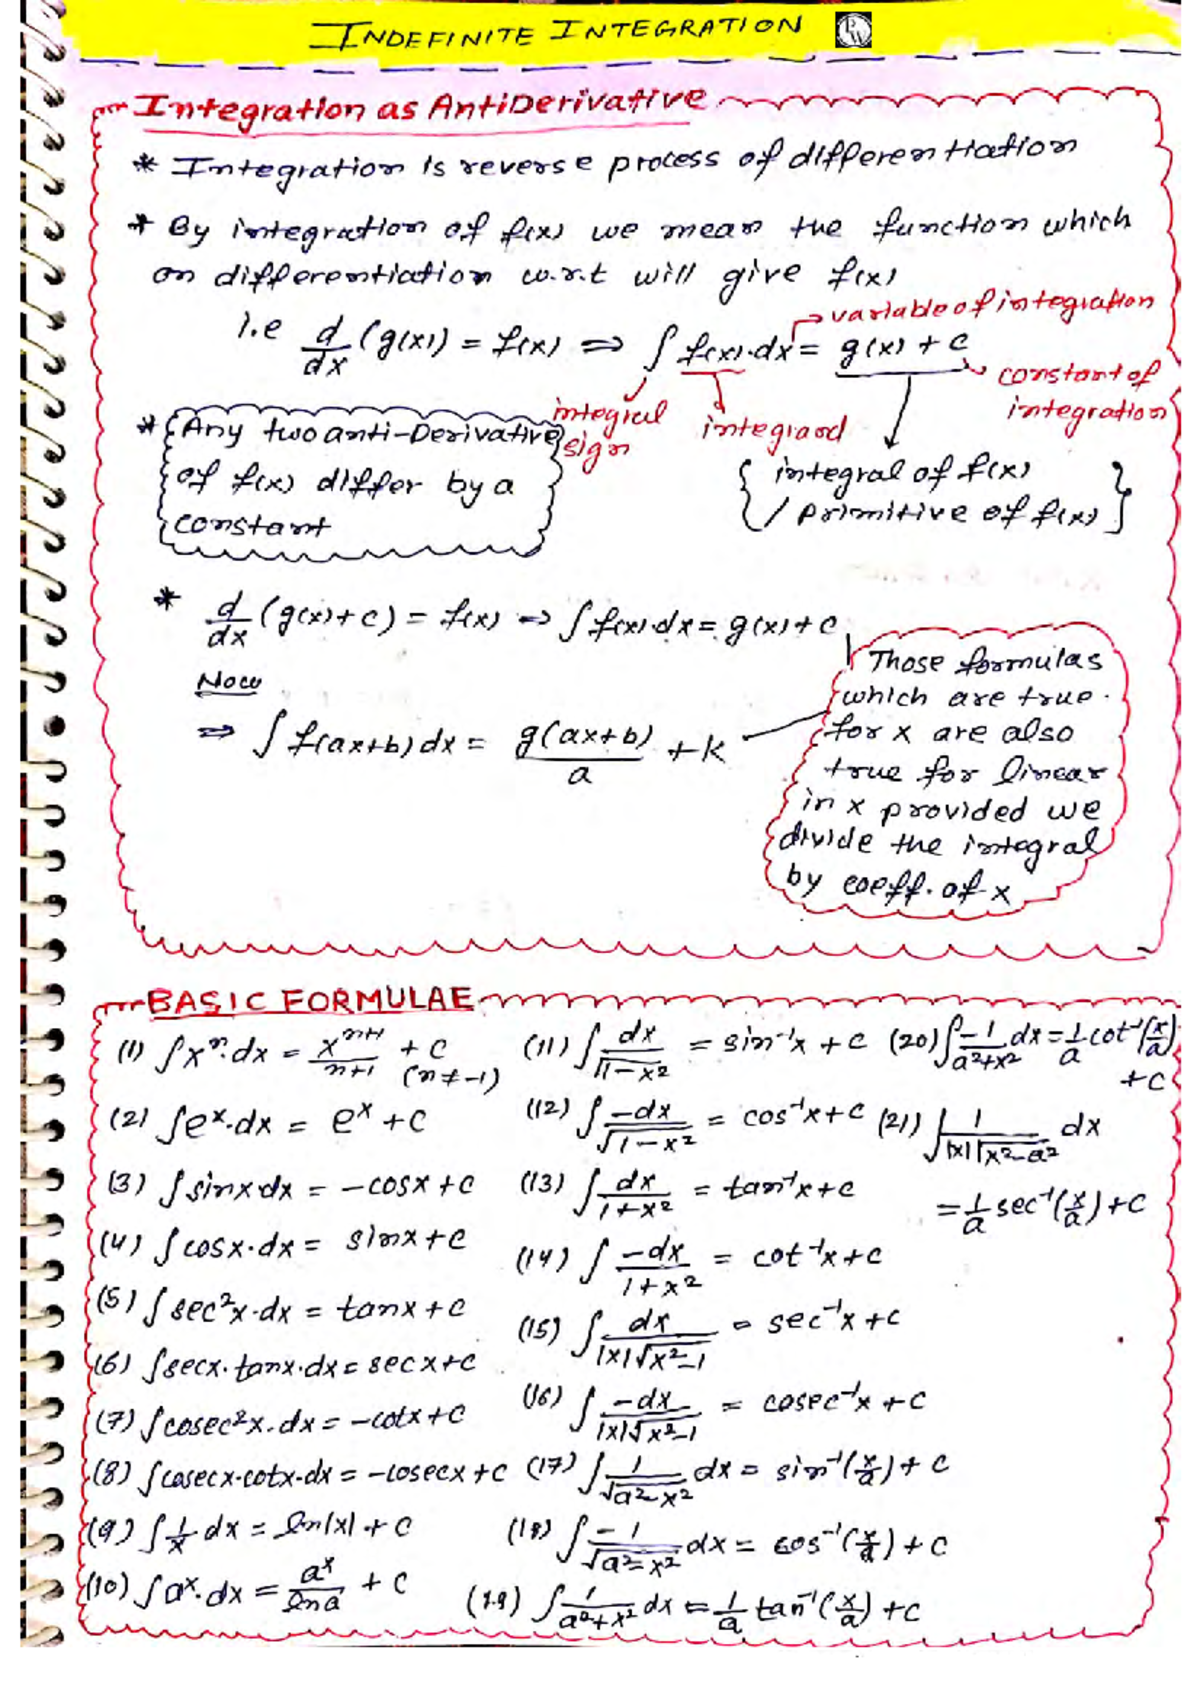 INDEFINITE INTEGRATION
PW
Integration as AntiDerivative
* Integration is reverse process of differentiation
* By integration of f(x) we mean the function which
on differentiation w.r.t will give f(x)
i.e d/dx (g(x)) = f(x) ⇒ ∫ f(x)·dx = g(x) + c
variable of integration
constant of
integration
integral
sign
integrand
{ integral of f(x)
/ primitive of f(x) }
* Any two anti-Derivative
of f(x) differ by a
constant
* d/dx (g(x)+c) = f(x) ⇒ ∫ f(x)dx = g(x)+c
Now
⇒ ∫ f(ax+b)dx = g(ax+b)/a + k
Those formulas
which are true
for x are also
true for linear
in x provided we
divide the integral
by coeff. of x
BASIC FORMULAE
(1) ∫xⁿ·dx = xⁿ⁺¹/n+1 + c (n≠-1)
(2) ∫eˣ·dx = eˣ + c
(3) ∫sinx·dx = -cosx + c
(4) ∫cosx·dx = sinx + c
(5) ∫sec²x·dx = tanx + c
(6) ∫secx·tanx·dx = secx+c
(7) ∫cosec²x·dx = -cotx + c
(8) ∫cosecx·cotx·dx = -cosecx + c
(9) ∫1/x dx = ln|x| + c
(10) ∫aˣ·dx = aˣ/lna + c
(11) ∫dx/√1-x² = sin⁻¹x + c
(12) ∫-dx/√1-x² = cos⁻¹x+c
(13) ∫dx/1+x² = tan⁻¹x+c
(14) ∫-dx/1+x² = cot⁻¹x+c
(15) ∫dx/|x|√x²-1 = sec⁻¹x + c
(16) ∫-dx/|x|√x²-1 = cosec⁻¹x + c
(17) ∫1/√a²-x² dx = sin⁻¹(x/a) + c
(18) ∫-1/√a²-x² dx = cos⁻¹(x/a) + c
(19) ∫1/a²+x² dx = 1/a tan⁻¹(x/a) + c
(20) ∫-1/a²+x² dx = 1/a cot⁻¹(x/a)
+c
(21) ∫1/|x|√x²-a² dx
= 1/a sec⁻¹(x/a) + c